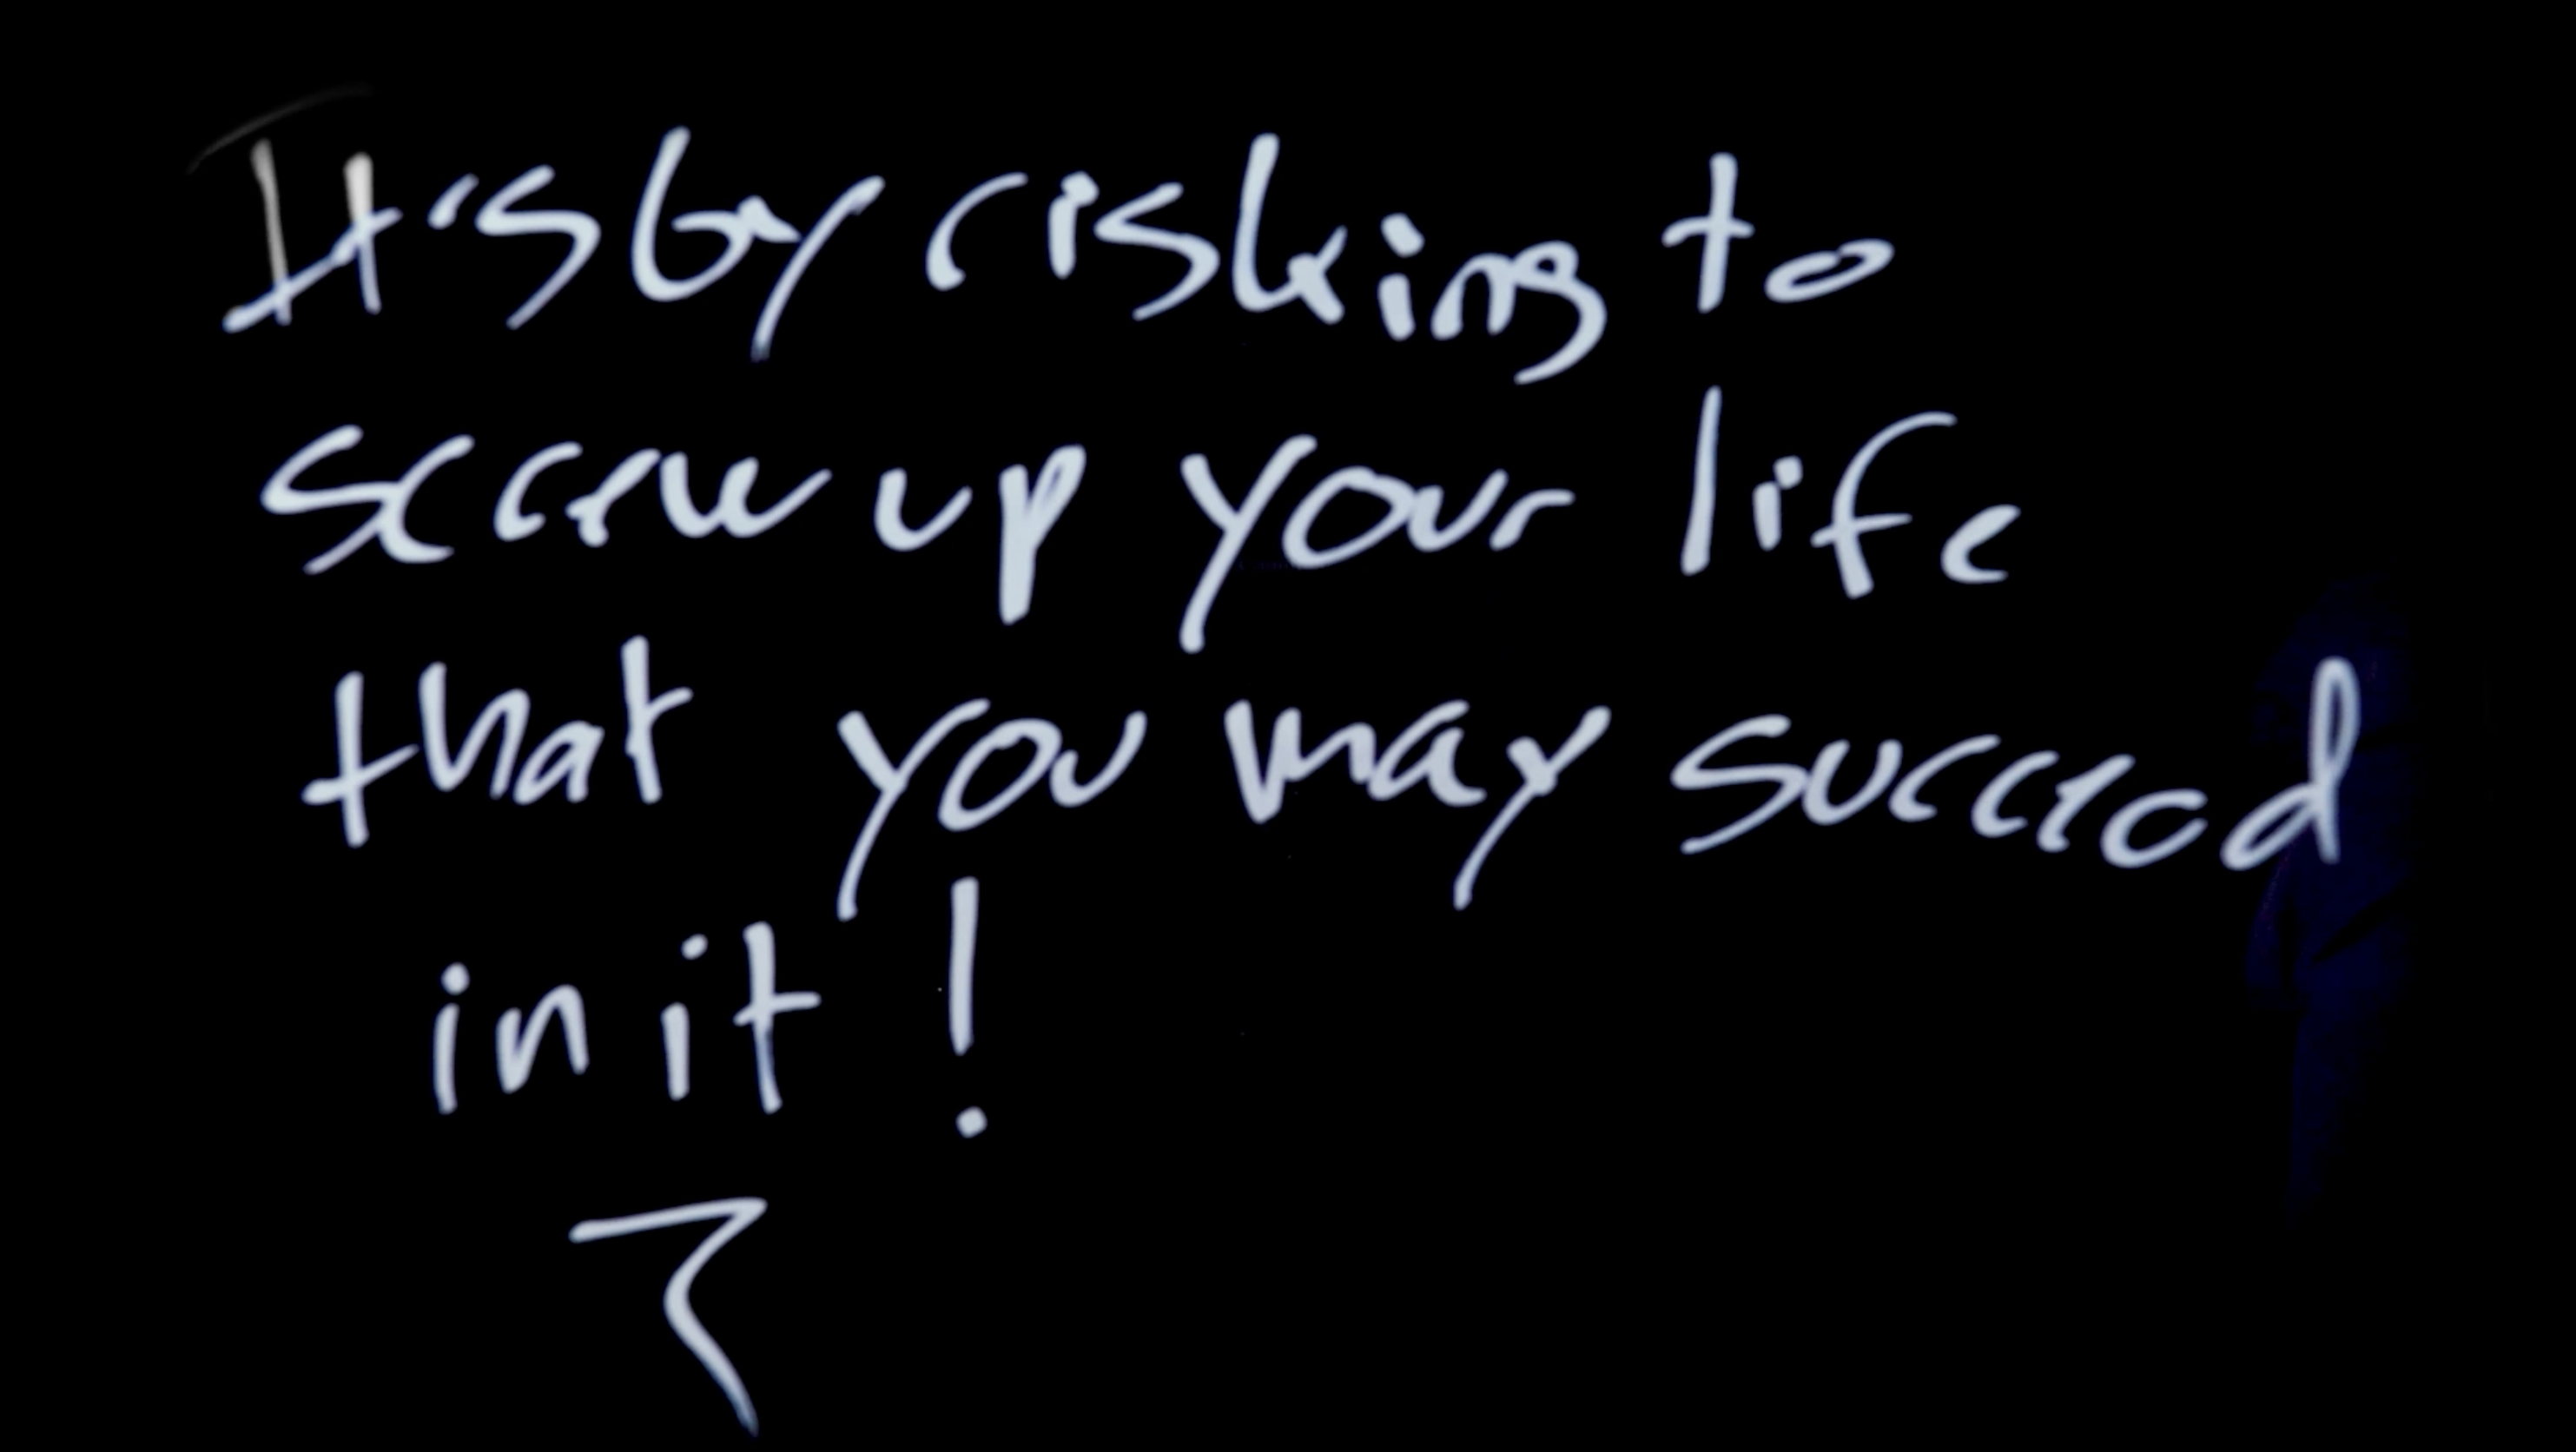 It's by risking to
screw up your life
that you may succeed
in it!